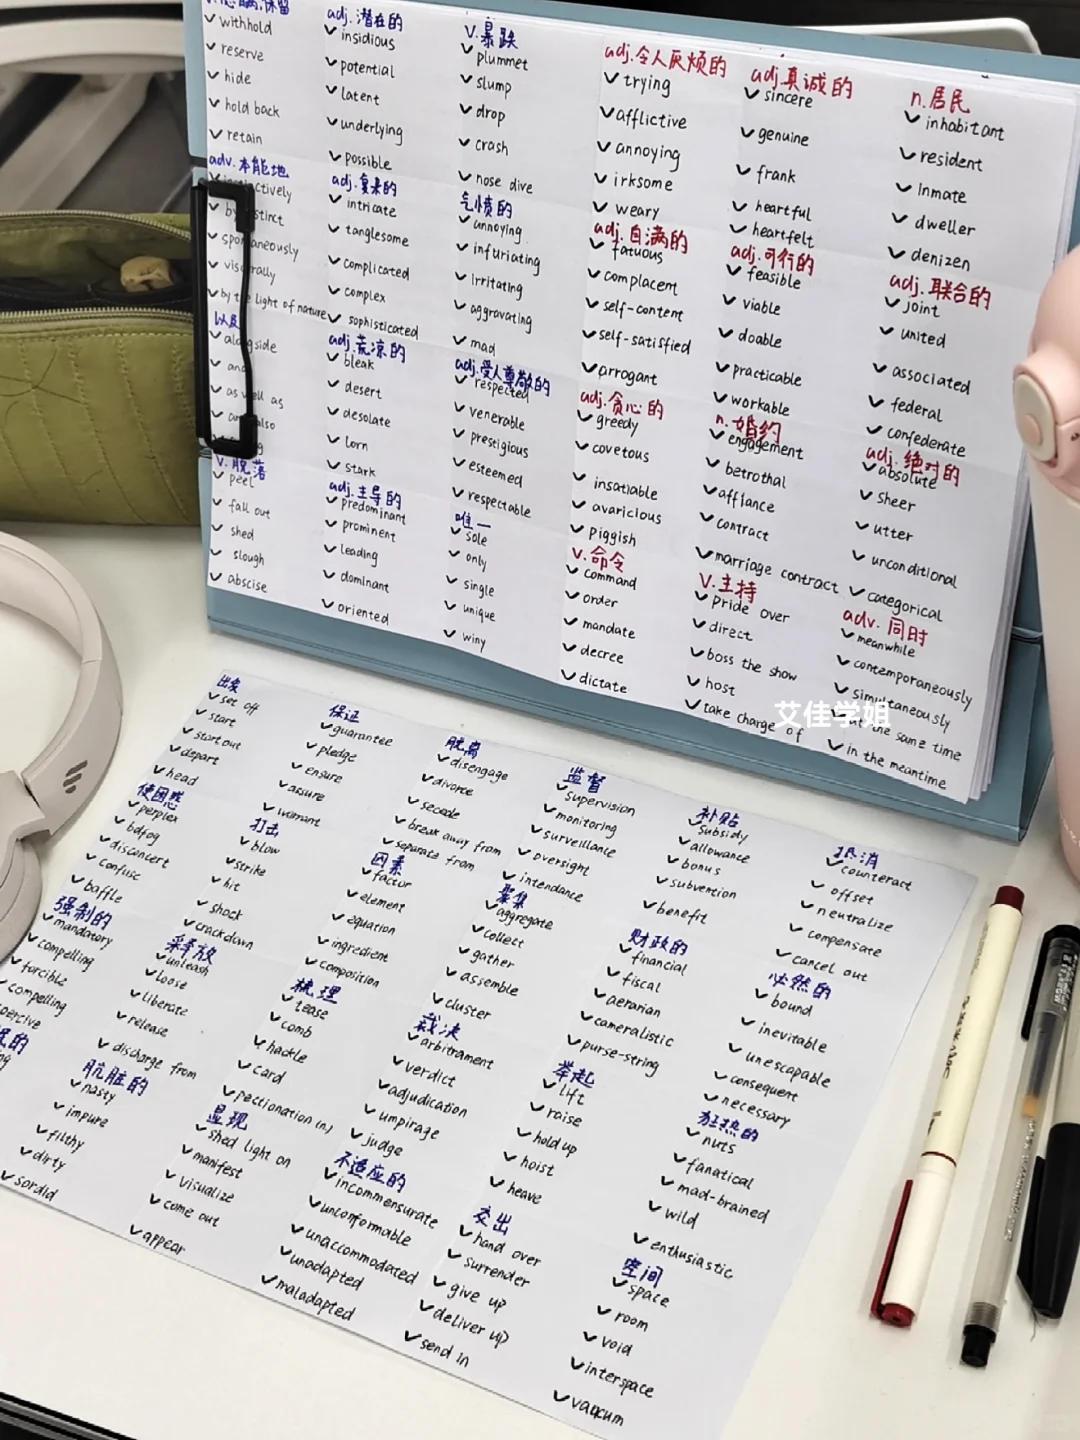 withhold
reserve
hide
hold back
retain
adv.本能地
spontaneously
viscerally
by the light of nature
以及
alongside
and
as well as
V.脱落
peel
fall out
shed
slough
abscise
adj.潜在的
insidious
potential
latent
underlying
possible
adj.复杂的
intricate
tanglesome
complicated
complex
sophisticated
adj.荒凉的
bleak
desert
desolate
lorn
stark
adj.主导的
predominant
prominent
leading
dominant
oriented
V.暴跌
plummet
slump
drop
crash
nose dive
气愤的
annoying
infuriating
irritating
aggravating
mad
adj.受人尊敬的
respected
venerable
prestigious
esteemed
respectable
唯一
sole
only
single
unique
winy
adj.令人厌烦的
trying
afflictive
annoying
irksome
weary
adj.自满的
fatuous
complacent
self-content
self-satisfied
arrogant
adj.贪心的
greedy
covetous
insatiable
avaricious
piggish
V.命令
command
order
mandate
decree
dictate
adj.真诚的
sincere
genuine
frank
heartful
heartfelt
adj.可行的
feasible
viable
doable
practicable
workable
n.婚约
engagement
betrothal
affiance
contract
marriage contract
V.主持
pride over
direct
boss the show
host
take charge of
n.居民
inhabitant
resident
inmate
dweller
denizen
adj.联合的
joint
united
associated
federal
confederate
adj.绝对的
absolute
sheer
utter
unconditional
categorical
adv.同时
meanwhile
contemporaneously
simultaneously
at the same time
in the meantime
艾佳学姐
出发
set off
start
start out
depart
head
使困惑
perplex
bdfog
disconcert
confuse
baffle
强制的
mandatory
compelling
forcible
compelling
保证
guarantee
pledge
ensure
assure
warrant
打击
blow
strike
hit
shock
crackdown
释放
unleash
loose
liberate
release
discharge from
肮脏的
nasty
impure
filthy
dirty
sordid
脱离
disengage
divorce
secede
break away from
separate from
因素
factor
element
equation
ingredient
composition
梳理
tease
comb
hackle
card
pectionation in)
显现
shed light on
manifest
visualize
come out
appear
监督
supervision
monitoring
surveillance
oversight
intendance
聚集
aggregate
collect
gather
assemble
cluster
裁决
arbitrament
verdict
adjudication
umpirage
judge
不适应的
incommensurate
unconformable
unaccommodated
unadapted
maladapted
补贴
subsidy
allowance
bonus
subvention
benefit
财政的
financial
fiscal
aerarian
cameralistic
purse-string
举起
lift
raise
hold up
hoist
heave
交出
hand over
surrender
give up
deliver up
send in
抵消
counteract
offset
neutralize
compensate
cancel out
必然的
bound
inevitable
unescapable
consequent
necessary
狂热的
nuts
fanatical
mad-brained
wild
enthusiastic
空间
space
room
void
interspace
vaucum